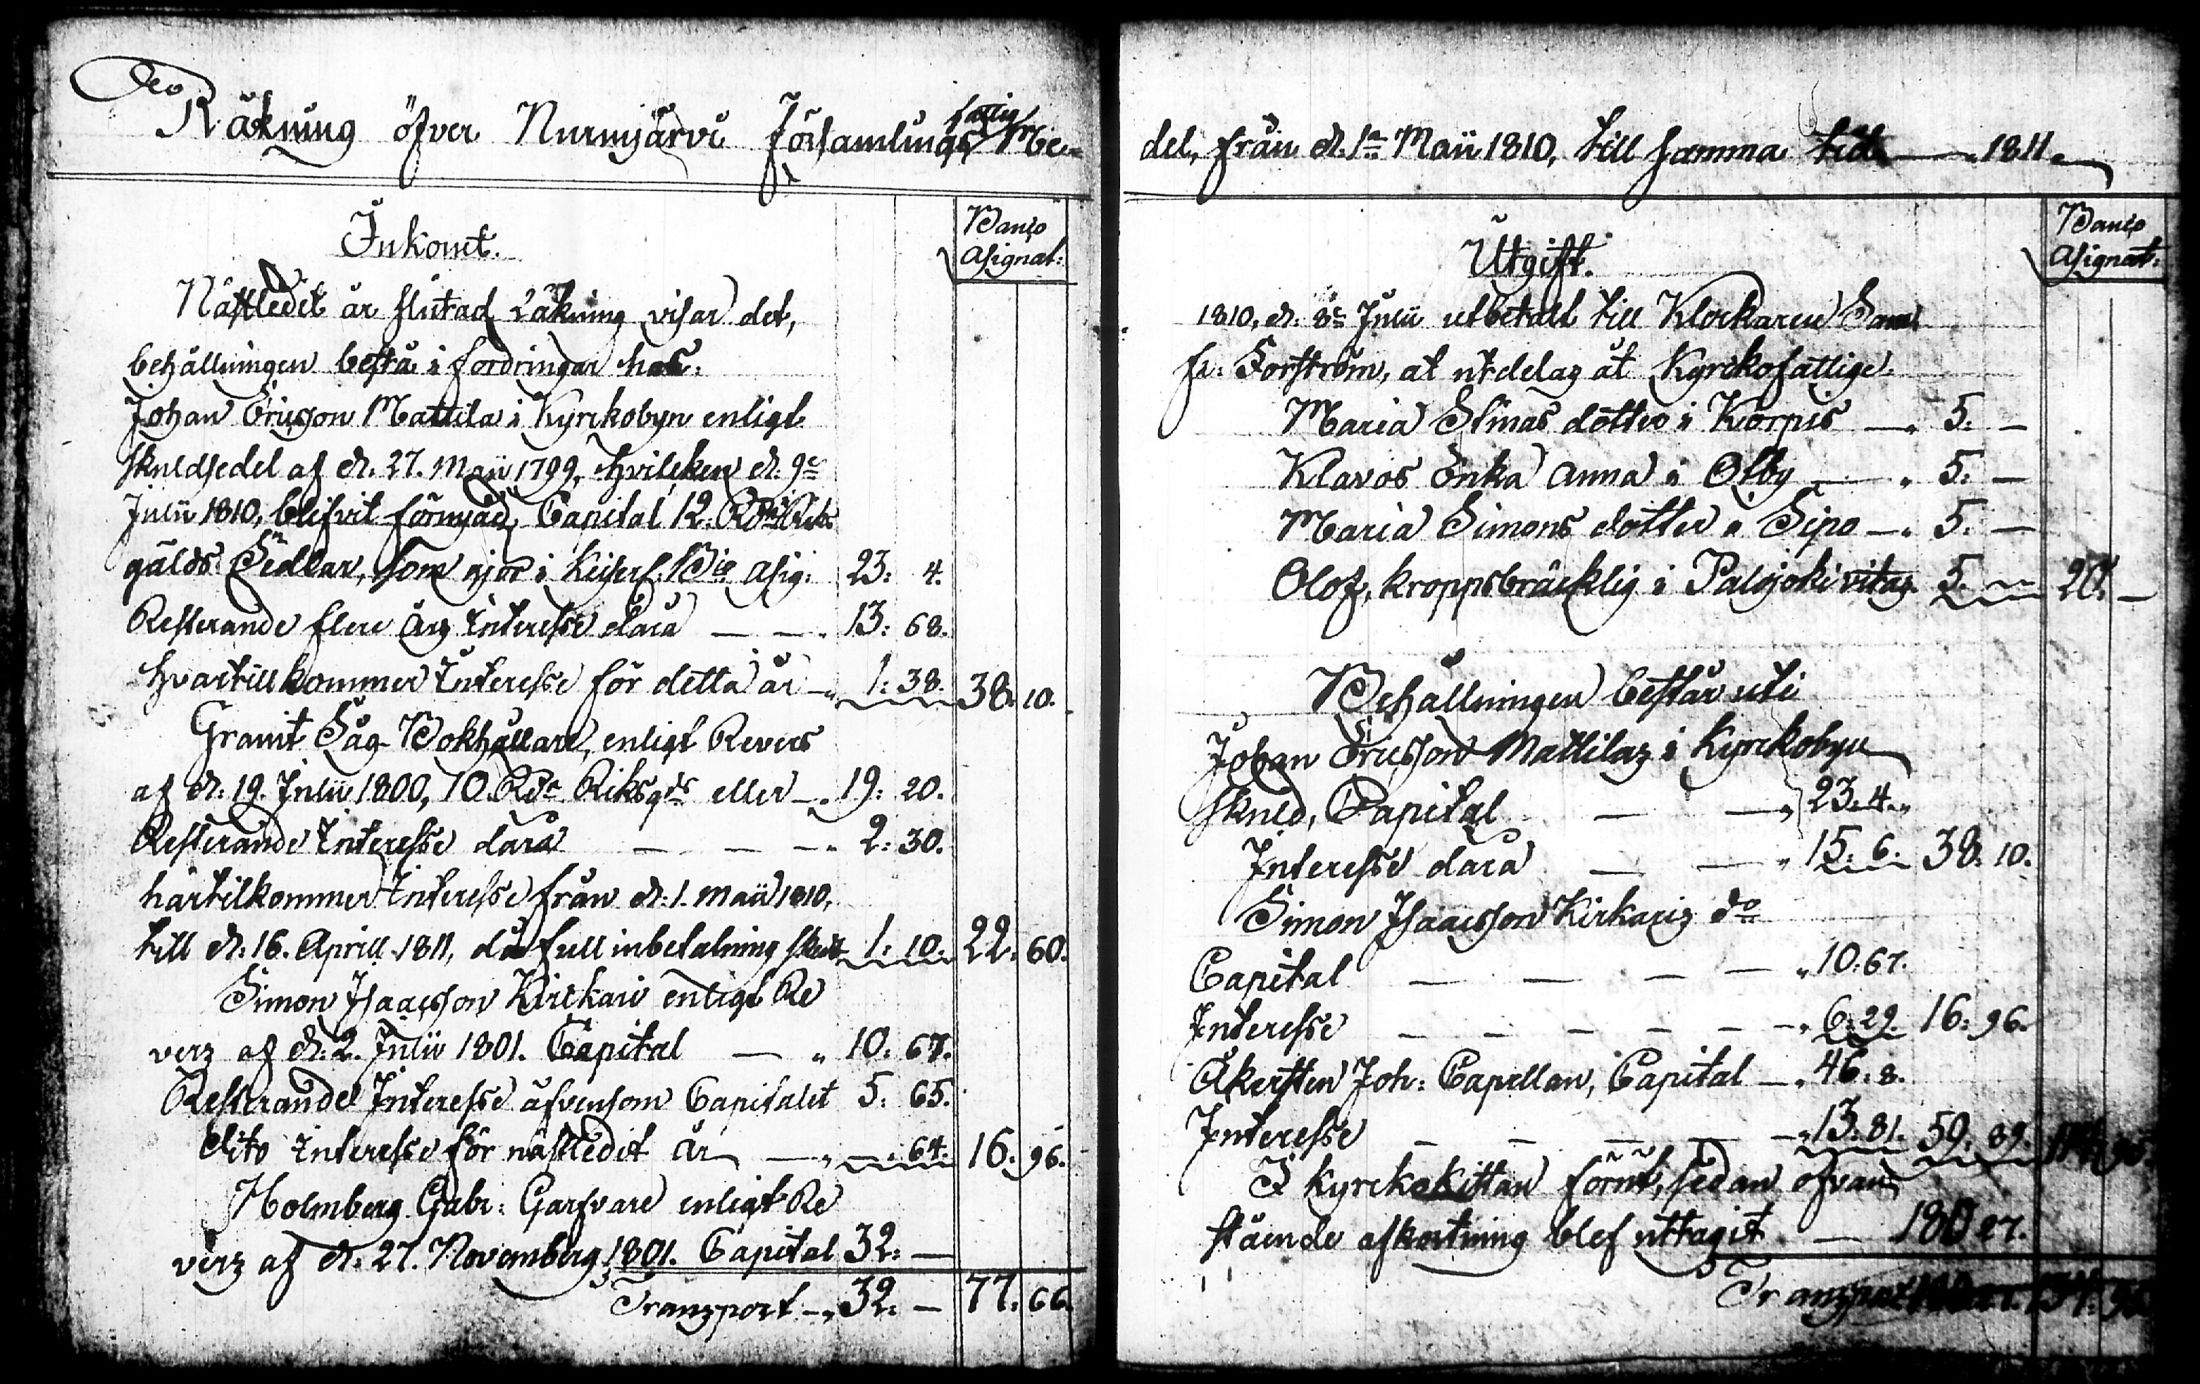 Räkning öfver Nurmjärvi Församlings fattig Me-
Inkomt.
Banco
Assignat:
Nästledit år slutad räkning visar det,
behållningen bestå i fordringar hos.
Johan Ericsson Mattila i Kyrckobyn enligt
skuldsedel af d. 27. Maii 1799, hvilcken d. 9e
Julii 1810, blifvit förnyad, Capital 12. Rdr Riks
gälds Sedlar, som gjör i Keiserl: Bco Assig: 23: 4.
Resterande flere års Interesse därå — — 13: 68.
Hvartill kommer Interesse för detta år — 1: 38. 38. 10.
Granit Såg-Bokhållare, enligt Revers
af d. 19. Julii 1800, 10. Rdr Riksgds eller — 19: 20.
Resterande Interesse därå — — — 2: 30.
härtilkommer Interesse från d. 1. Maii 1810,
till d. 16. Aprill 1811, då full inbetalning skedt 1: 10: 22: 60.
Simon Isaacsson Kirckari enligt Re
vers af d. 2. Julii 1801. Capital — 10: 67.
Resterande Interesse äfvensom Capitalet 5: 65.
dito Interesse för nästledit år — — 64: 16: 96.
Holmberg Gabr: Garfvare enligt Re
vers af d. 27. Novemberg 1801. Capital 32: —
Transport — 32: — 77: 66.
del, från d. 1a Maii 1810, till samma tid — 1811.
Utgift.
Banco
Assignat:
1810, d. 8e Julii utbetalt till Klockaren Sam
Forström, at utdelas åt Kyrckofattige
Maria Stinas dotter i Korpis — 5: —
Klavos Enka Anna i Olby — 5: —
Maria Simons dotter i Sipo — 5: —
Olof, kroppsbräcklig i Palojoki 5. — 20. —
Behållningen består uti
Johan Ericsson Mattilas i Kyrckobyn
skuld, Capital — — 23. 4.
Interesse därå — — 15. 6. 38. 10.
Simon Isaacsson Kirkaris do
Capital — — — — 10: 67.
Interesse — — — — — 6: 29. 16: 96.
Åkersten Joh: Capellan, Capital — 46: 8.
Interesse — — — — 13: 81. 59: 89.
I Kyrckokistan förnt, sedan ofvan
stående afkortning blef uttagit — 180 27.
Transport